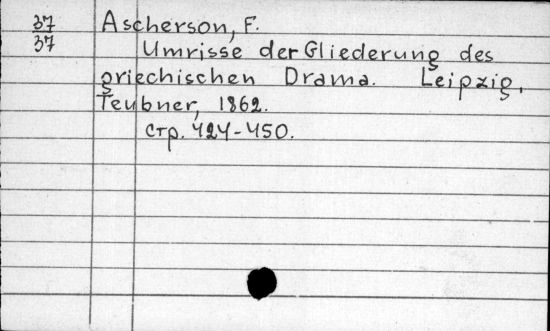 37 Ascherson, F.
37 Umrisse der Gliederung des
griechischen Drama. Leipzig,
Teubner, 1862.
стр. 424-450.